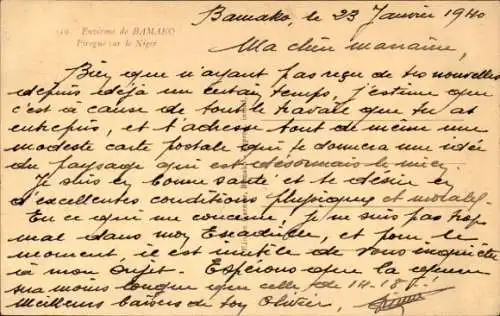 119. Environs de BAMAKO
Pirogue sur le Niger
Bamako, le 23 Janvier 1940
Ma chère marraine,
Bien que n'ayant pas reçu de tes nouvelles
depuis déjà un certain temps, j'estime que
c'est à cause de tout le travail que tu as
entrepris, et t'adresse tout de même une
modeste carte postale qui te donnera une idée
du paysage qui est désormais le mien.
Je suis en bonne santé et te désire en
d'excellentes conditions physiques et morales.
En ce qui me concerne, je ne suis pas trop
mal dans mon Escadrille et pour le
moment, il est inutile de vous inquiéter
à mon sujet. Espérons que la guerre
sera moins longue que celle de 14-18 !
Meilleurs baisers de ton Olivier,